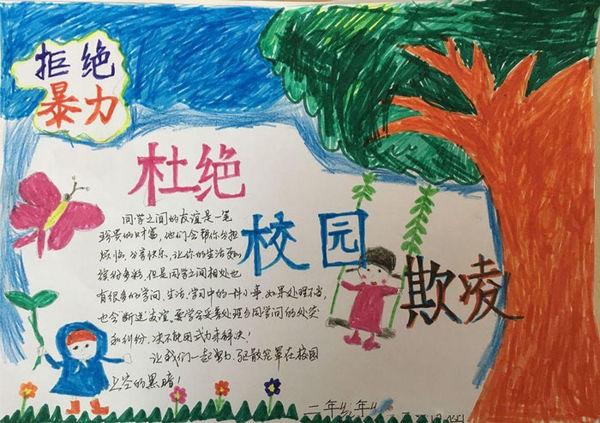 拒绝
暴力
杜绝
校园
欺凌
同学之间的友谊是一笔
珍贵的财富,他们会帮你分担
烦恼,分享快乐,让你的生活更加
缤纷多彩,但是同学之间相处也
有很多的学问、生活、学习中的一件小事,如果处理不当,
也会断送友谊,要学会妥善处理与同学间的处突
和纠纷,决不能用武力来解决!
让我们一起努力,驱散笼罩在校园
上空的黑暗!
二年